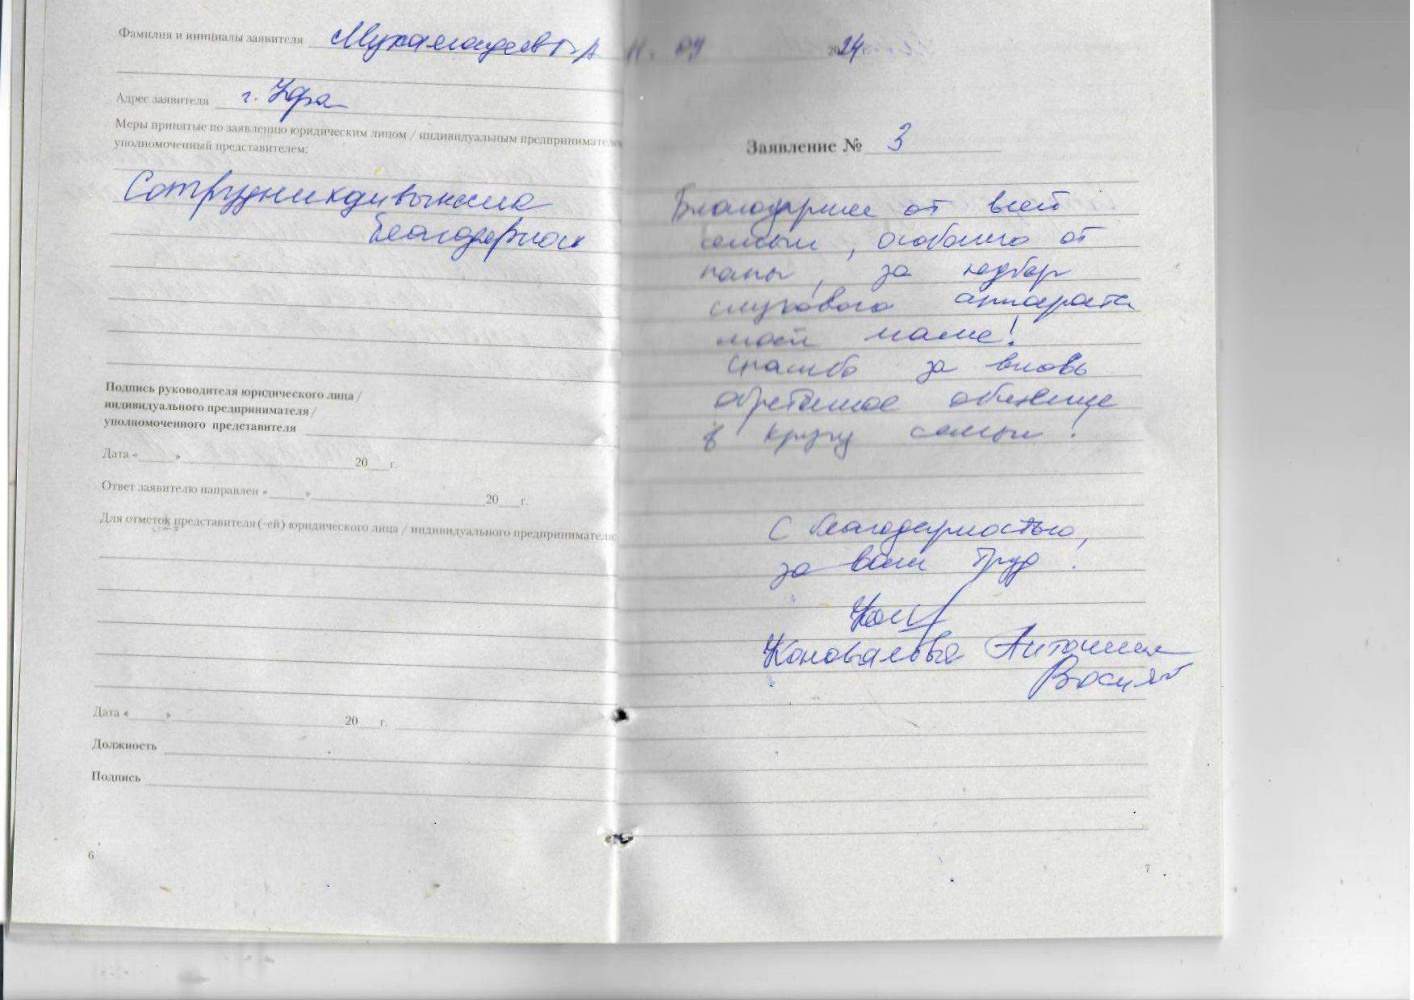 Фамилия и инициалы заявителя
Адрес заявителя г. Уфа
Меры принятые по заявлению юридическим лицом / индивидуальным предпринимателем
уполномоченный представителем:
Сотрудникам вынесена
благодарность
Подпись руководителя юридического лица /
индивидуального предпринимателя /
уполномоченного представителя
Дата « » 20 г.
Ответ заявителю направлен « » 20 г.
Для отметок представителя (-ей) юридического лица / индивидуального предпринимателя
Дата « » 20 г.
Должность
Подпись
6
11. 09 2024
Заявление № 3
Благодарим от всей
семьи, особенно от
папы, за подбор
слухового аппарата
моей маме!
Спасибо за вновь
обретенное общение
в кругу семьи!
С благодарностью,
за ваш труд!
Коновалова Антонина
7